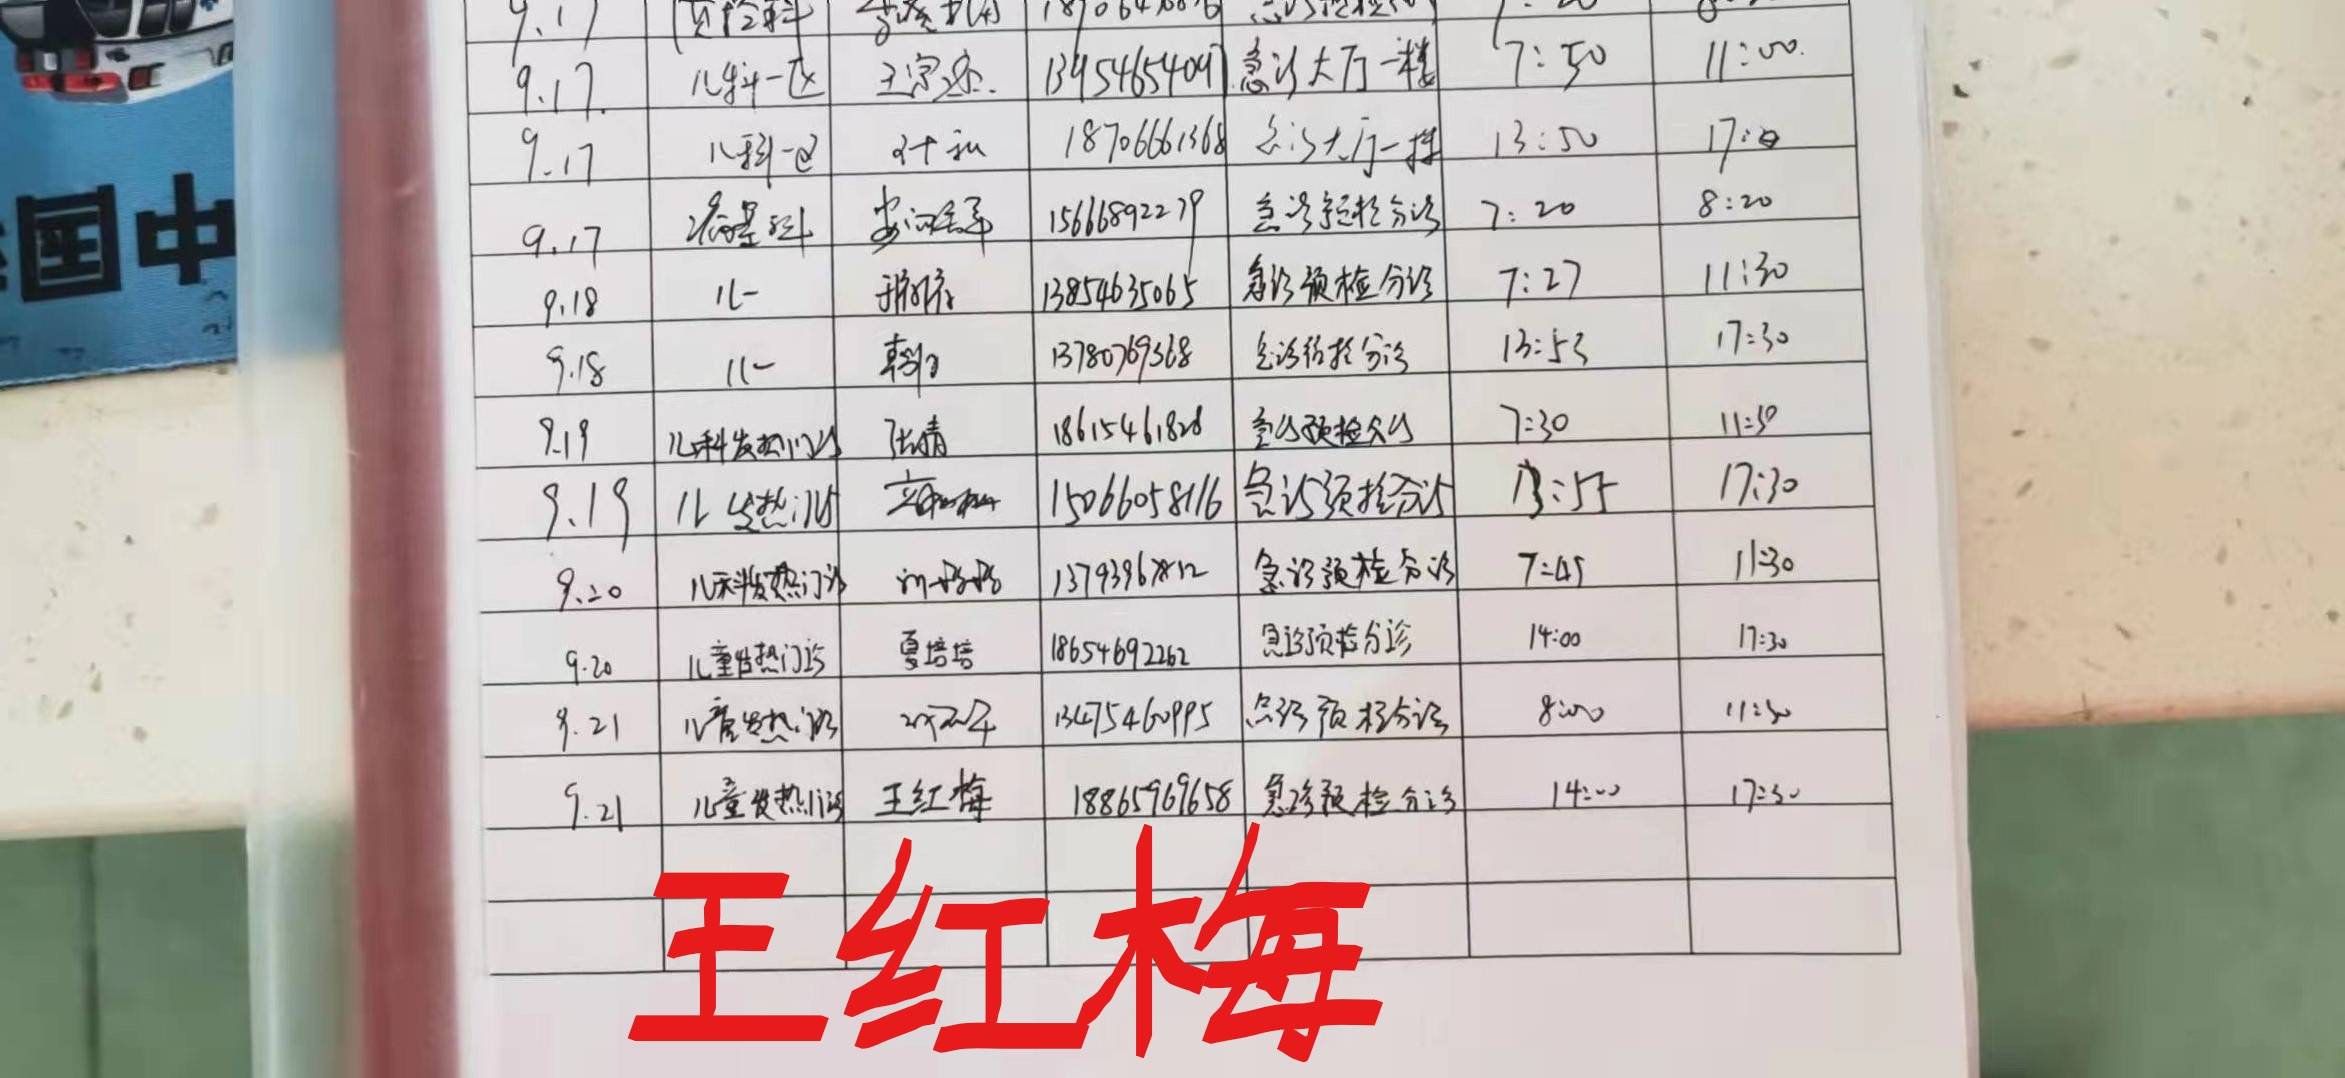 9.17 儿科一区 13954654097 急诊大厅一楼 7:50 11:00.
9.17 儿科一区 18706661368 急诊大厅一楼 13:50 17:0
中国
9.17 病案科 15666892279 急诊预检分诊 7:20 8:20
9.18 儿一 13854635065 急诊预检分诊 7:27 11:30
9.18 儿一 13780769368 急诊预检分诊 13:53 17:30
9.19 儿科发热门诊 张晴 18615461828 急诊预检分诊 7:30 11:30
9.19 儿发热门诊 15066058116 急诊预检分诊 13:55 17:30
9.20 儿科发热门诊 急诊预检分诊 7:45 11:30
9.20 儿童发热门诊 夏培培 18654692262 急诊预检分诊 14:00 17:30
9.21 儿童发热门诊 13475460995 急诊预检分诊 8:00 11:30
9.21 儿童发热门诊 王红梅 18865969658 急诊预检分诊 14:00 17:30
王红梅